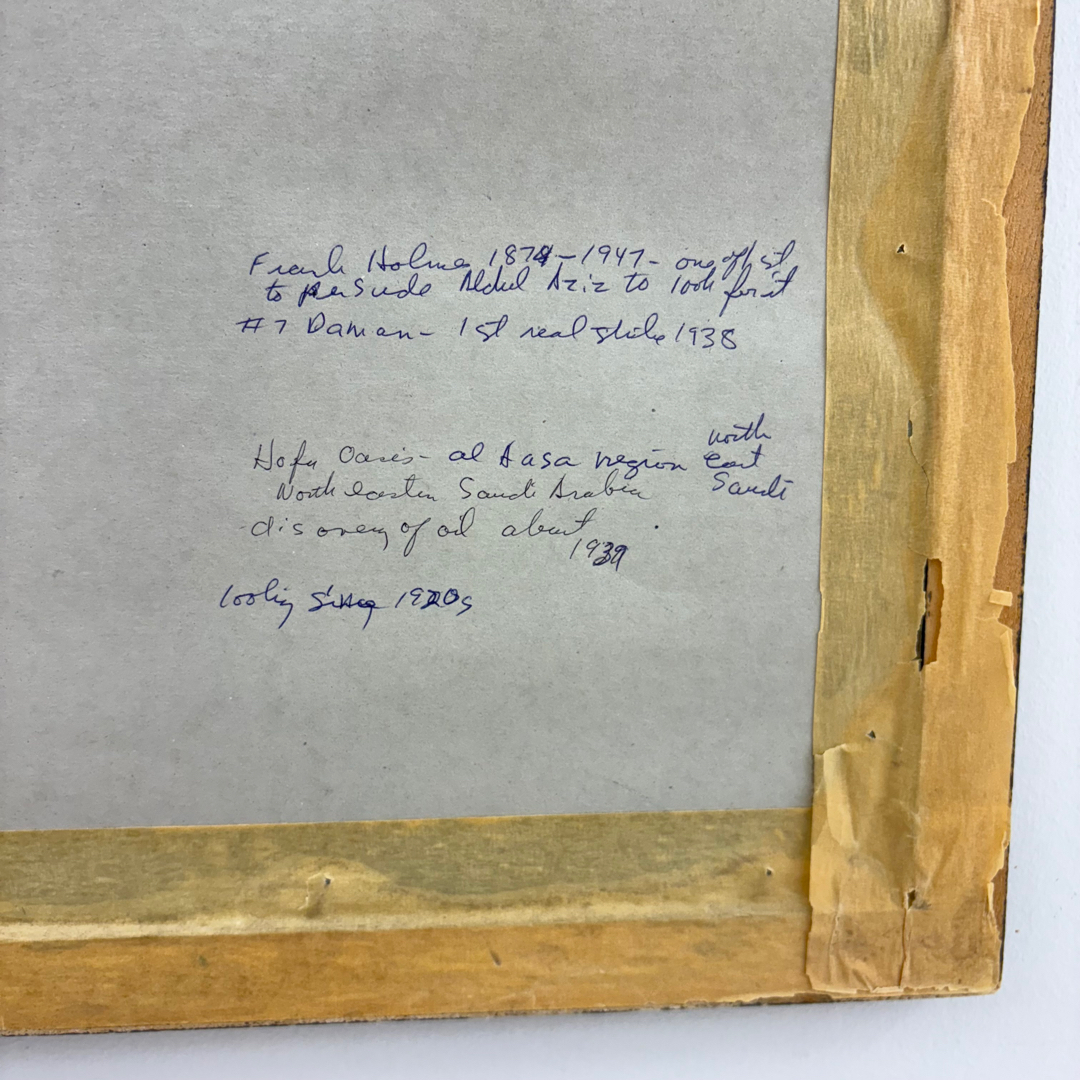 Frank Holmes 1874-1947- one of 1st
to persude Abdul Aziz to look for it
#7 Damam- 1st real strike 1938
Hofu Oasis- al hasa region north east Saudi
North eastern Saudi Arabia
discovery of oil about
1939
looking since 1920s